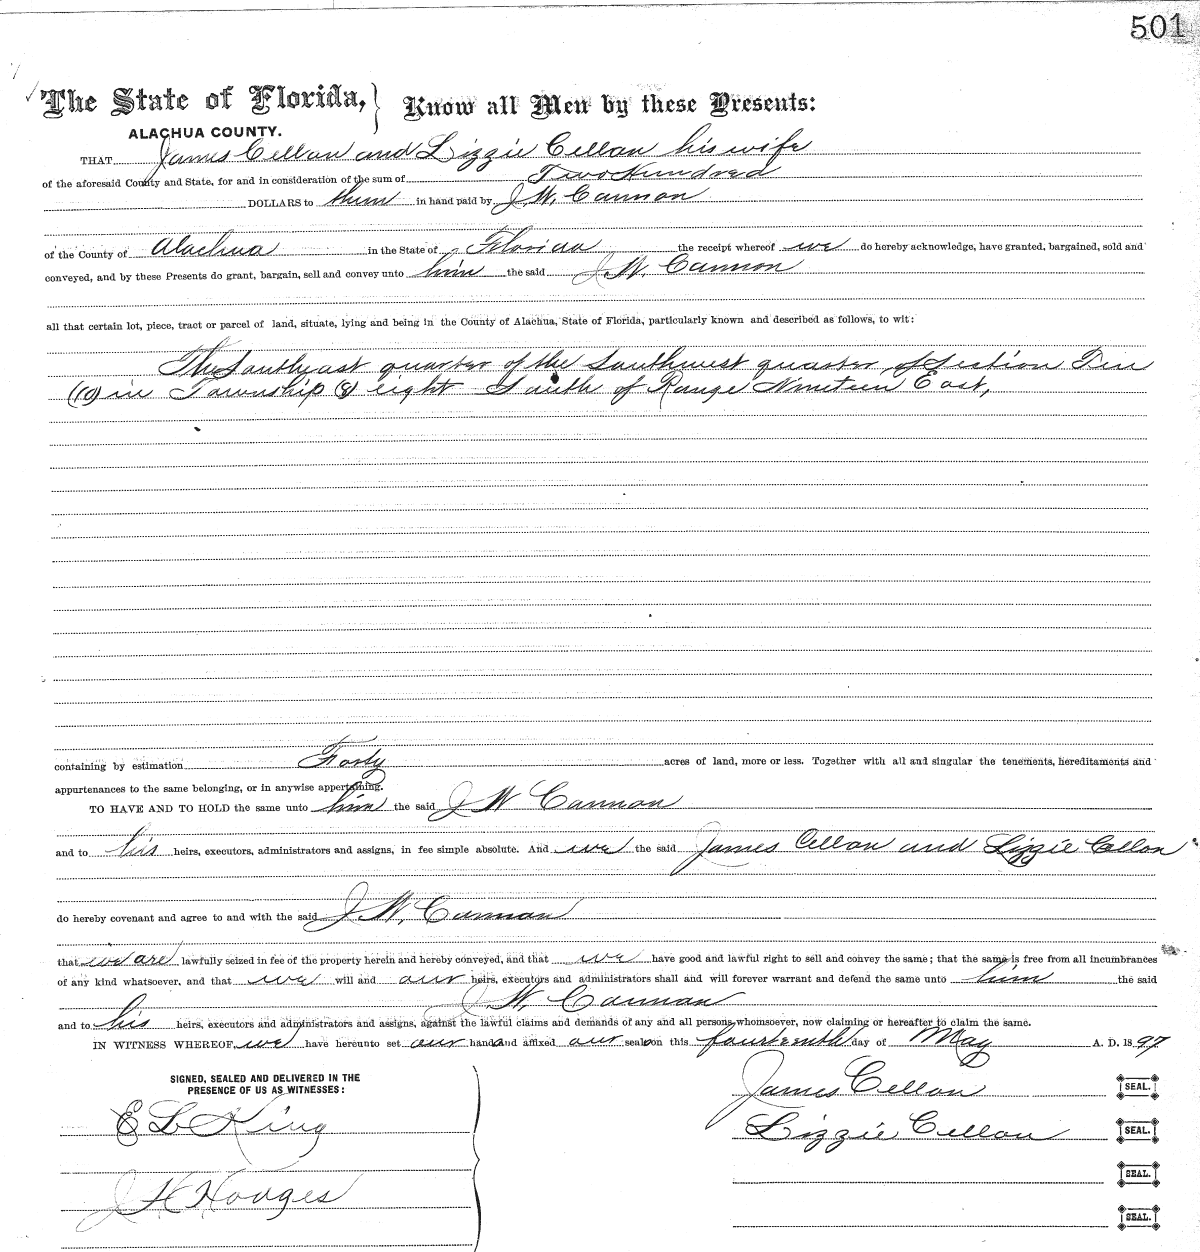 501
The State of Florida, } Know all Men by these Presents:
ALACHUA COUNTY.
THAT James Cellon and Lizzie Cellon his wife
of the aforesaid County and State, for and in consideration of the sum of Two Hundred
DOLLARS to them in hand paid by J. W. Cannon
of the County of Alachua in the State of Florida the receipt whereof we do hereby acknowledge, have granted, bargained, sold and
conveyed, and by these Presents do grant, bargain, sell and convey unto him the said J. W. Cannon
all that certain lot, piece, tract or parcel of land, situate, lying and being in the County of Alachua, State of Florida, particularly known and described as follows, to wit:
The Southeast quarter of the Southwest quarter of Section Ten
(10) in Township (8) eight South of Range Nineteen East,
containing by estimation Forty acres of land, more or less. Together with all and singular the tenements, hereditaments and
appurtenances to the same belonging, or in anywise appertaining.
TO HAVE AND TO HOLD the same unto him the said J W Cannon
and to his heirs, executors, administrators and assigns, in fee simple absolute. And we the said James Cellon and Lizzie Cellon
do hereby covenant and agree to and with the said J. W. Cannon
that we are lawfully seized in fee of the property herein and hereby conveyed, and that we have good and lawful right to sell and convey the same; that the same is free from all incumbrances
of any kind whatsoever, and that we will and our heirs, executors and administrators shall and will forever warrant and defend the same unto him the said
J. W. Cannon
and to his heirs, executors and administrators and assigns, against the lawful claims and demands of any and all persons whomsoever, now claiming or hereafter to claim the same.
IN WITNESS WHEREOF, we have hereunto set our hands and affixed our seals on this fourteenth day of May A. D. 1897
SIGNED, SEALED AND DELIVERED IN THE
PRESENCE OF US AS WITNESSES:
James Cellon SEAL.
E L King
Lizzie Cellon SEAL.
SEAL.
J H Hodges
SEAL.